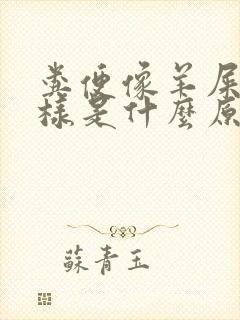 糞便像羊屎
樣是什麼原
蘇青玉